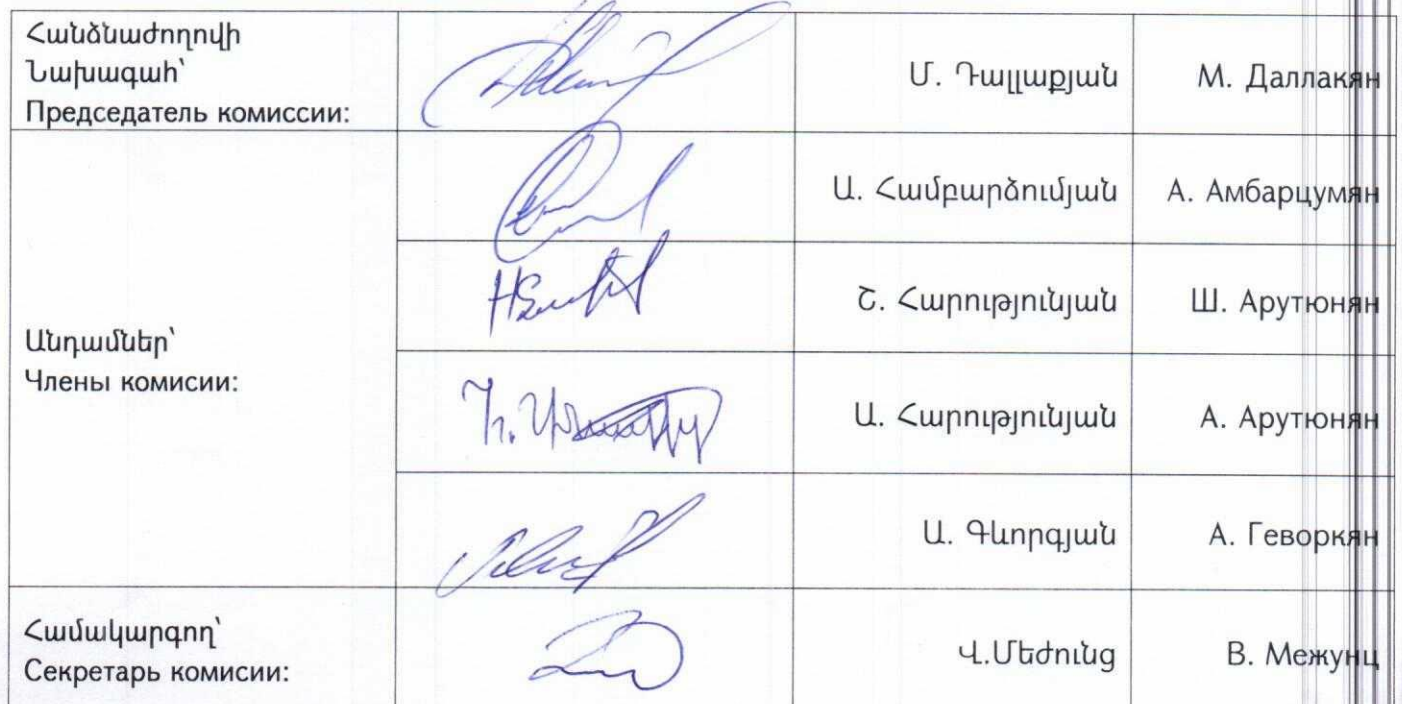 Հանձնաժողովի
Նախագահ՝
Председатель комиссии:
Մ. Դալլաքյան
М. Даллакян
Ա. Համբարձումյան
А. Амбарцумян
Շ. Հարությունյան
Ш. Арутюнян
Անդամներ՝
Члены комисии:
Ա. Հարությունյան
А. Арутюнян
Ա. Գևորգյան
А. Геворкян
Համակարգող՝
Секретарь комисии:
Վ.Մեժունց
В. Межунц